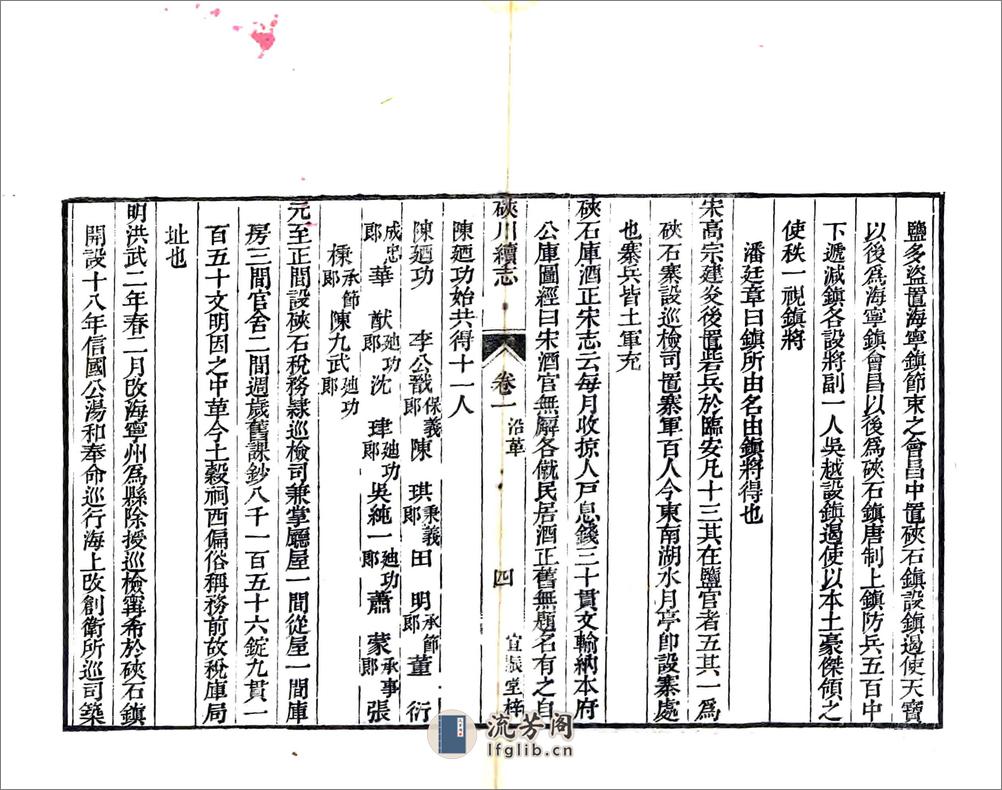 鹽多盜置海寧鎮節束之會昌中置硤石鎮設鎮遏使天寶
以後爲海寧鎮會昌以後爲硤石鎮唐制上鎮防兵五百中
下遞減鎮各設將副一人吳越設鎮遏使以本土豪傑領之
使秩一視鎮將
潘廷章曰鎮所由名由鎮將得也
宋高宗建炎後置砦兵於臨安凡十三其在鹽官者五其一爲
硤石寨設巡檢司置寨軍百人今東南湖水月亭卽設寨處
也寨兵皆土軍充
硤石庫酒正宋志云每月收掠人戸息錢三十貫文輸納本府
公庫圖經曰宋酒官無廨各僦民居酒正舊無題名有之自
硤川續志 卷一 沿革 四 宜振堂梓
陳廼功始共得十一人
陳廼功 李公戩保義郎 陳琪秉義郎 田明承節郎 董衍
成忠郎 華猷廸功郎 沈𤥨廸功郎 吳純一廸功郎 蕭蒙承事郎 張
樑承節郎 陳九武廸功郎
元至正間設硤石稅務隸巡檢司兼掌廳屋一間從屋一間庫
房三間官舍二間週歲舊課鈔八千一百五十六錠九貫一
百五十文明因之中革今土穀祠西偏俗稱務前故稅庫局
址也
明洪武二年春二月改海寧州爲縣除授巡檢甯希於硤石鎮
開設十八年信國公湯和奉命巡行海上改創衛所巡司築
流芳阁
lfglib.cn